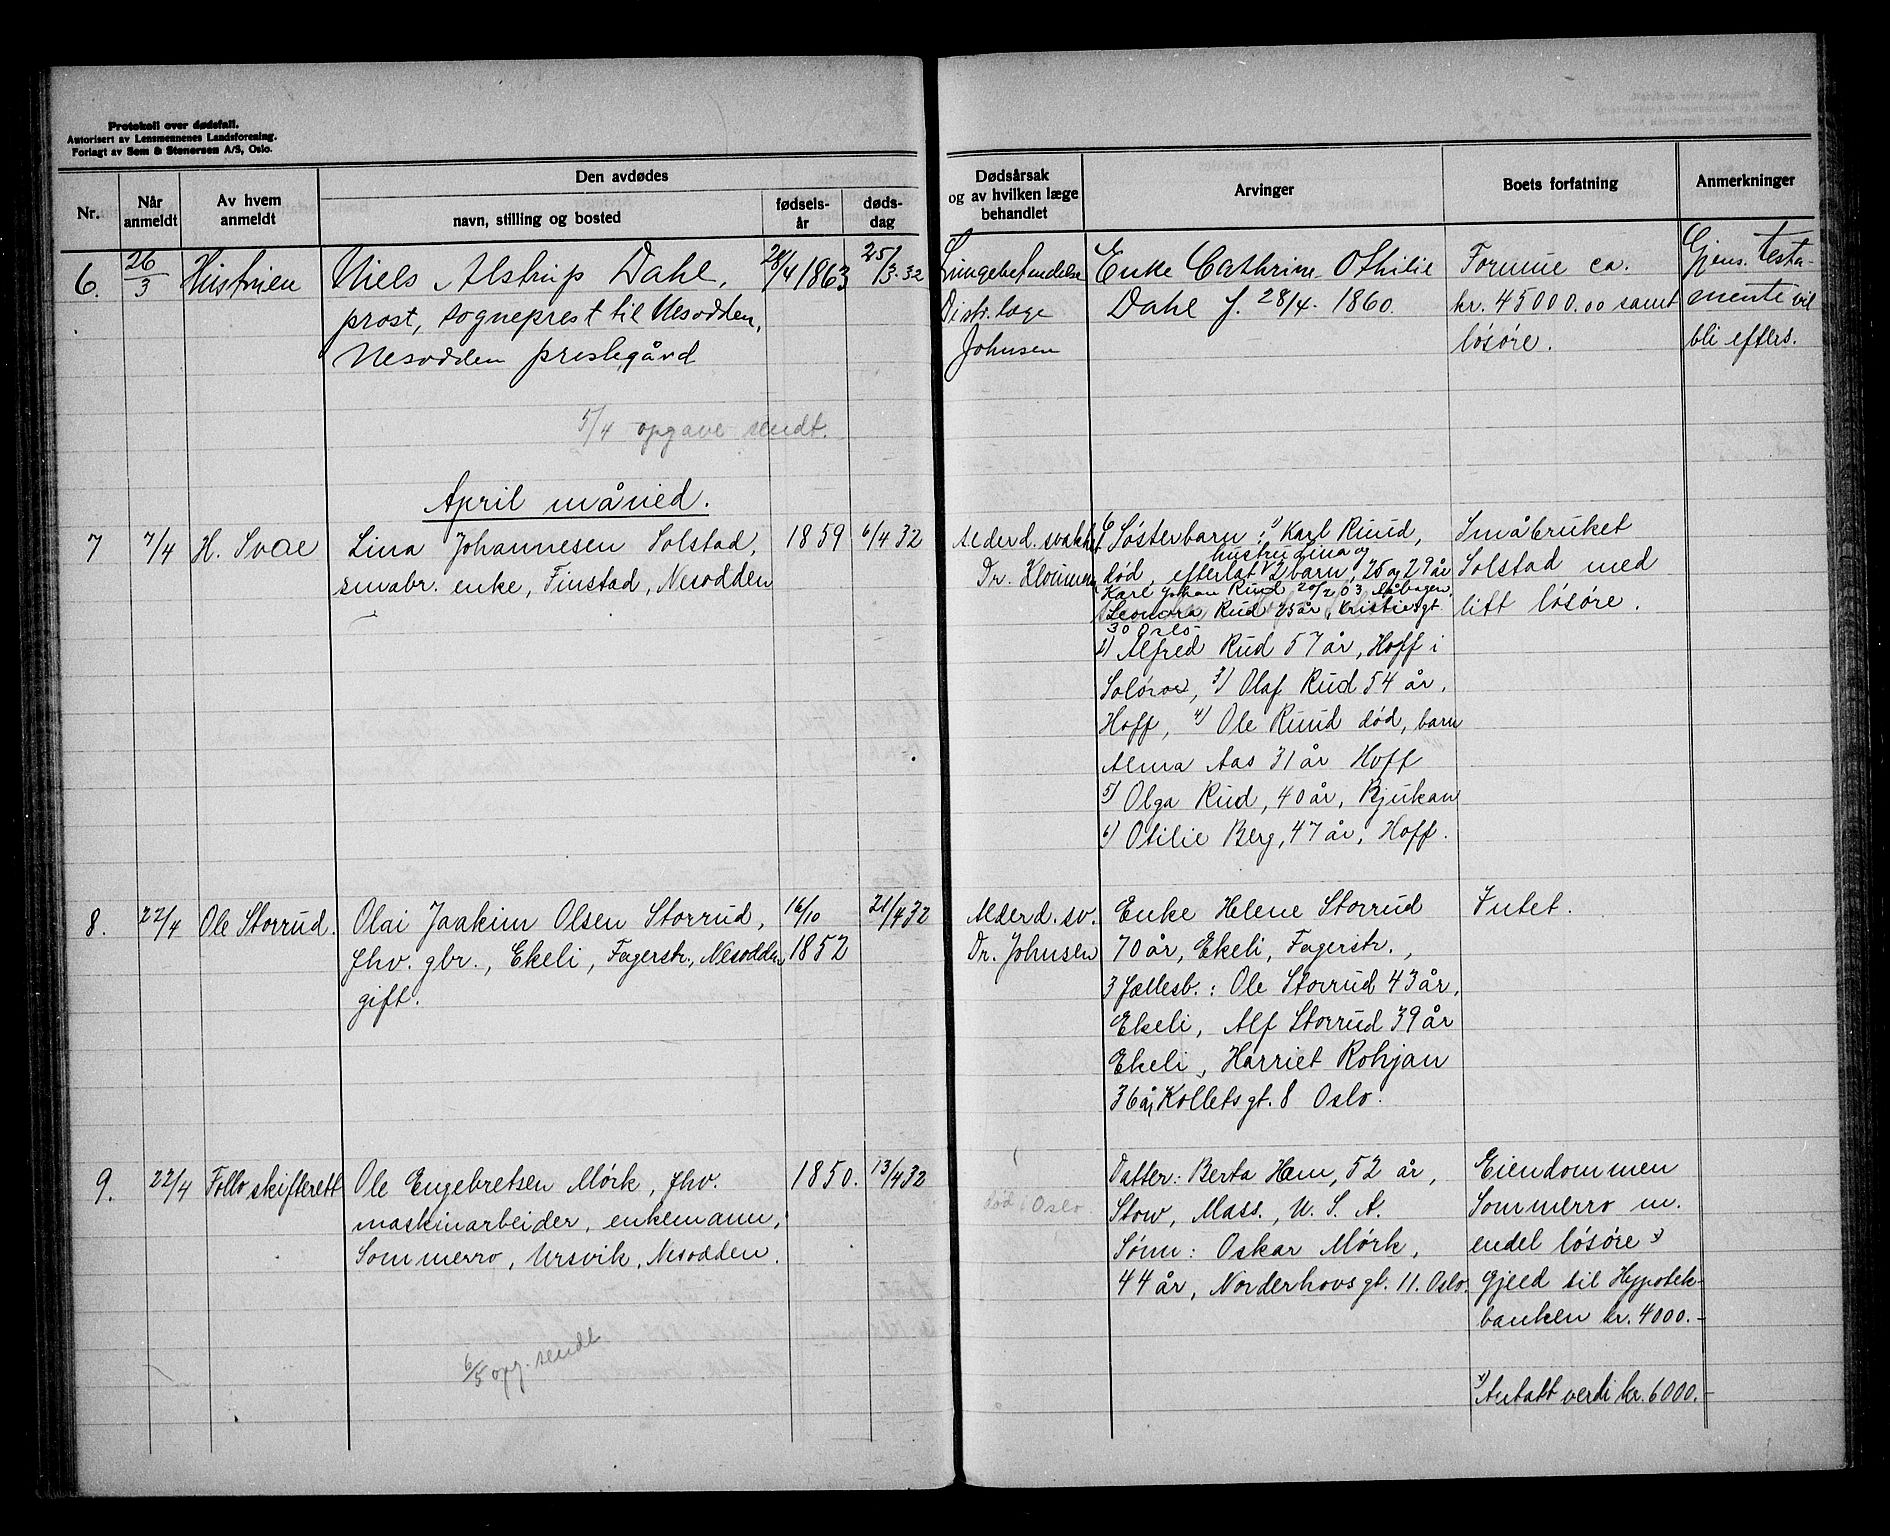 Protokoll over dødsfall.
Autorisert av Lensmennenes Landsforening.
Forlagt av Sem & Stenersen A/S, Oslo.
Nr.
Når anmeldt
Av hvem anmeldt
Den avdødes
navn, stilling og bosted
fødsels-år
døds-dag
Dødsårsak
og av hvilken læge
behandlet
Arvinger
Boets forfatning
Anmerkninger
6. 26/3 Hustruen
Niels Alstrup Dahl,
prost, sogneprest til Nesodden,
Nesodden prestegård
28/4 1863
25/3-32
Distr. læge
Johnsen
Enke Cathrine Othilie
Dahl f. 28/4. 1860.
Formue ca.
kr. 45000.00 samt
løsøre.
Gjens. testa-
mente vil
bli efters.
5/4 opgave sendt.
April måned.
7 7/4 H. Svae
Lina Johannesen Solstad,
småbr. enke, Finstad, Nesodden
1859
6/4 32
Alderd. svakhet
Dr.
6 Søsterbarn: 1) Karl Ruud,
hustru Lina og
død, efterlat 2 barn, 25 og 29 år
Karl Johan Rud 20/2 03
Leonora Rud 25 år, Kristiesgt
30 Oslo
2) Alfred Rud 57 år, Hoff i
Solør, 3) Olaf Rud 54 år,
Hoff, 4) Ole Ruud død, barn
Alma Aas 31 år Hoff
5) Olga Rud, 40 år, Rjukan
6) Otilie Berg, 47 år, Hoff.
Småbruket
Solstad med
litt løsøre.
8. 22/4 Ole Storrud.
Olai Joakim Olsen Storrud,
fhv. gbr., Ekeli, Fagerstr., Nesodden
gift.
16/10
1852
21/4 32
Alderd. sv.
Dr. Johnsen
Enke Helene Storrud
70 år, Ekeli, Fagerstr.,
3 fællesb.: Ole Storrud 43 år,
Ekeli, Alf Storrud 39 år
Ekeli, Harriet Rohjan
36 år, Kolletsgt. 8 Oslo.
Intet.
9. 22/4 Follo skifterett
Ole Engebretsen Mørk, fhv.
maskinarbeider, enkemann,
Sommerro, Ursvik, Nesodden.
1850.
13/4 32
død i Oslo.
Datter: Berta Hem, 52 år,
Stow, Mass., U. S. A.
Sønn: Oskar Mørk,
44 år, Norderhovsgt. 11. Oslo.
Eiendommen
Sommerro m.
endel løsøre x)
Gjeld til Hypotek-
banken kr. 4000.-
x) Antatt verdi kr. 6000.-
6/5 opg. sendt